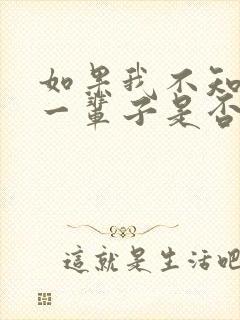 如果我不知
一辈子是否
這就是生活吧